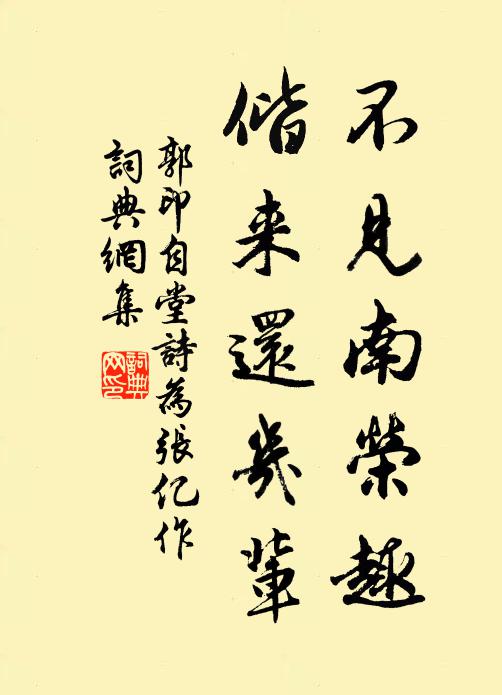 不見南榮趎
偕来還幾輩
郭印自堂詩為張仡作
詞典網集
詞典網印